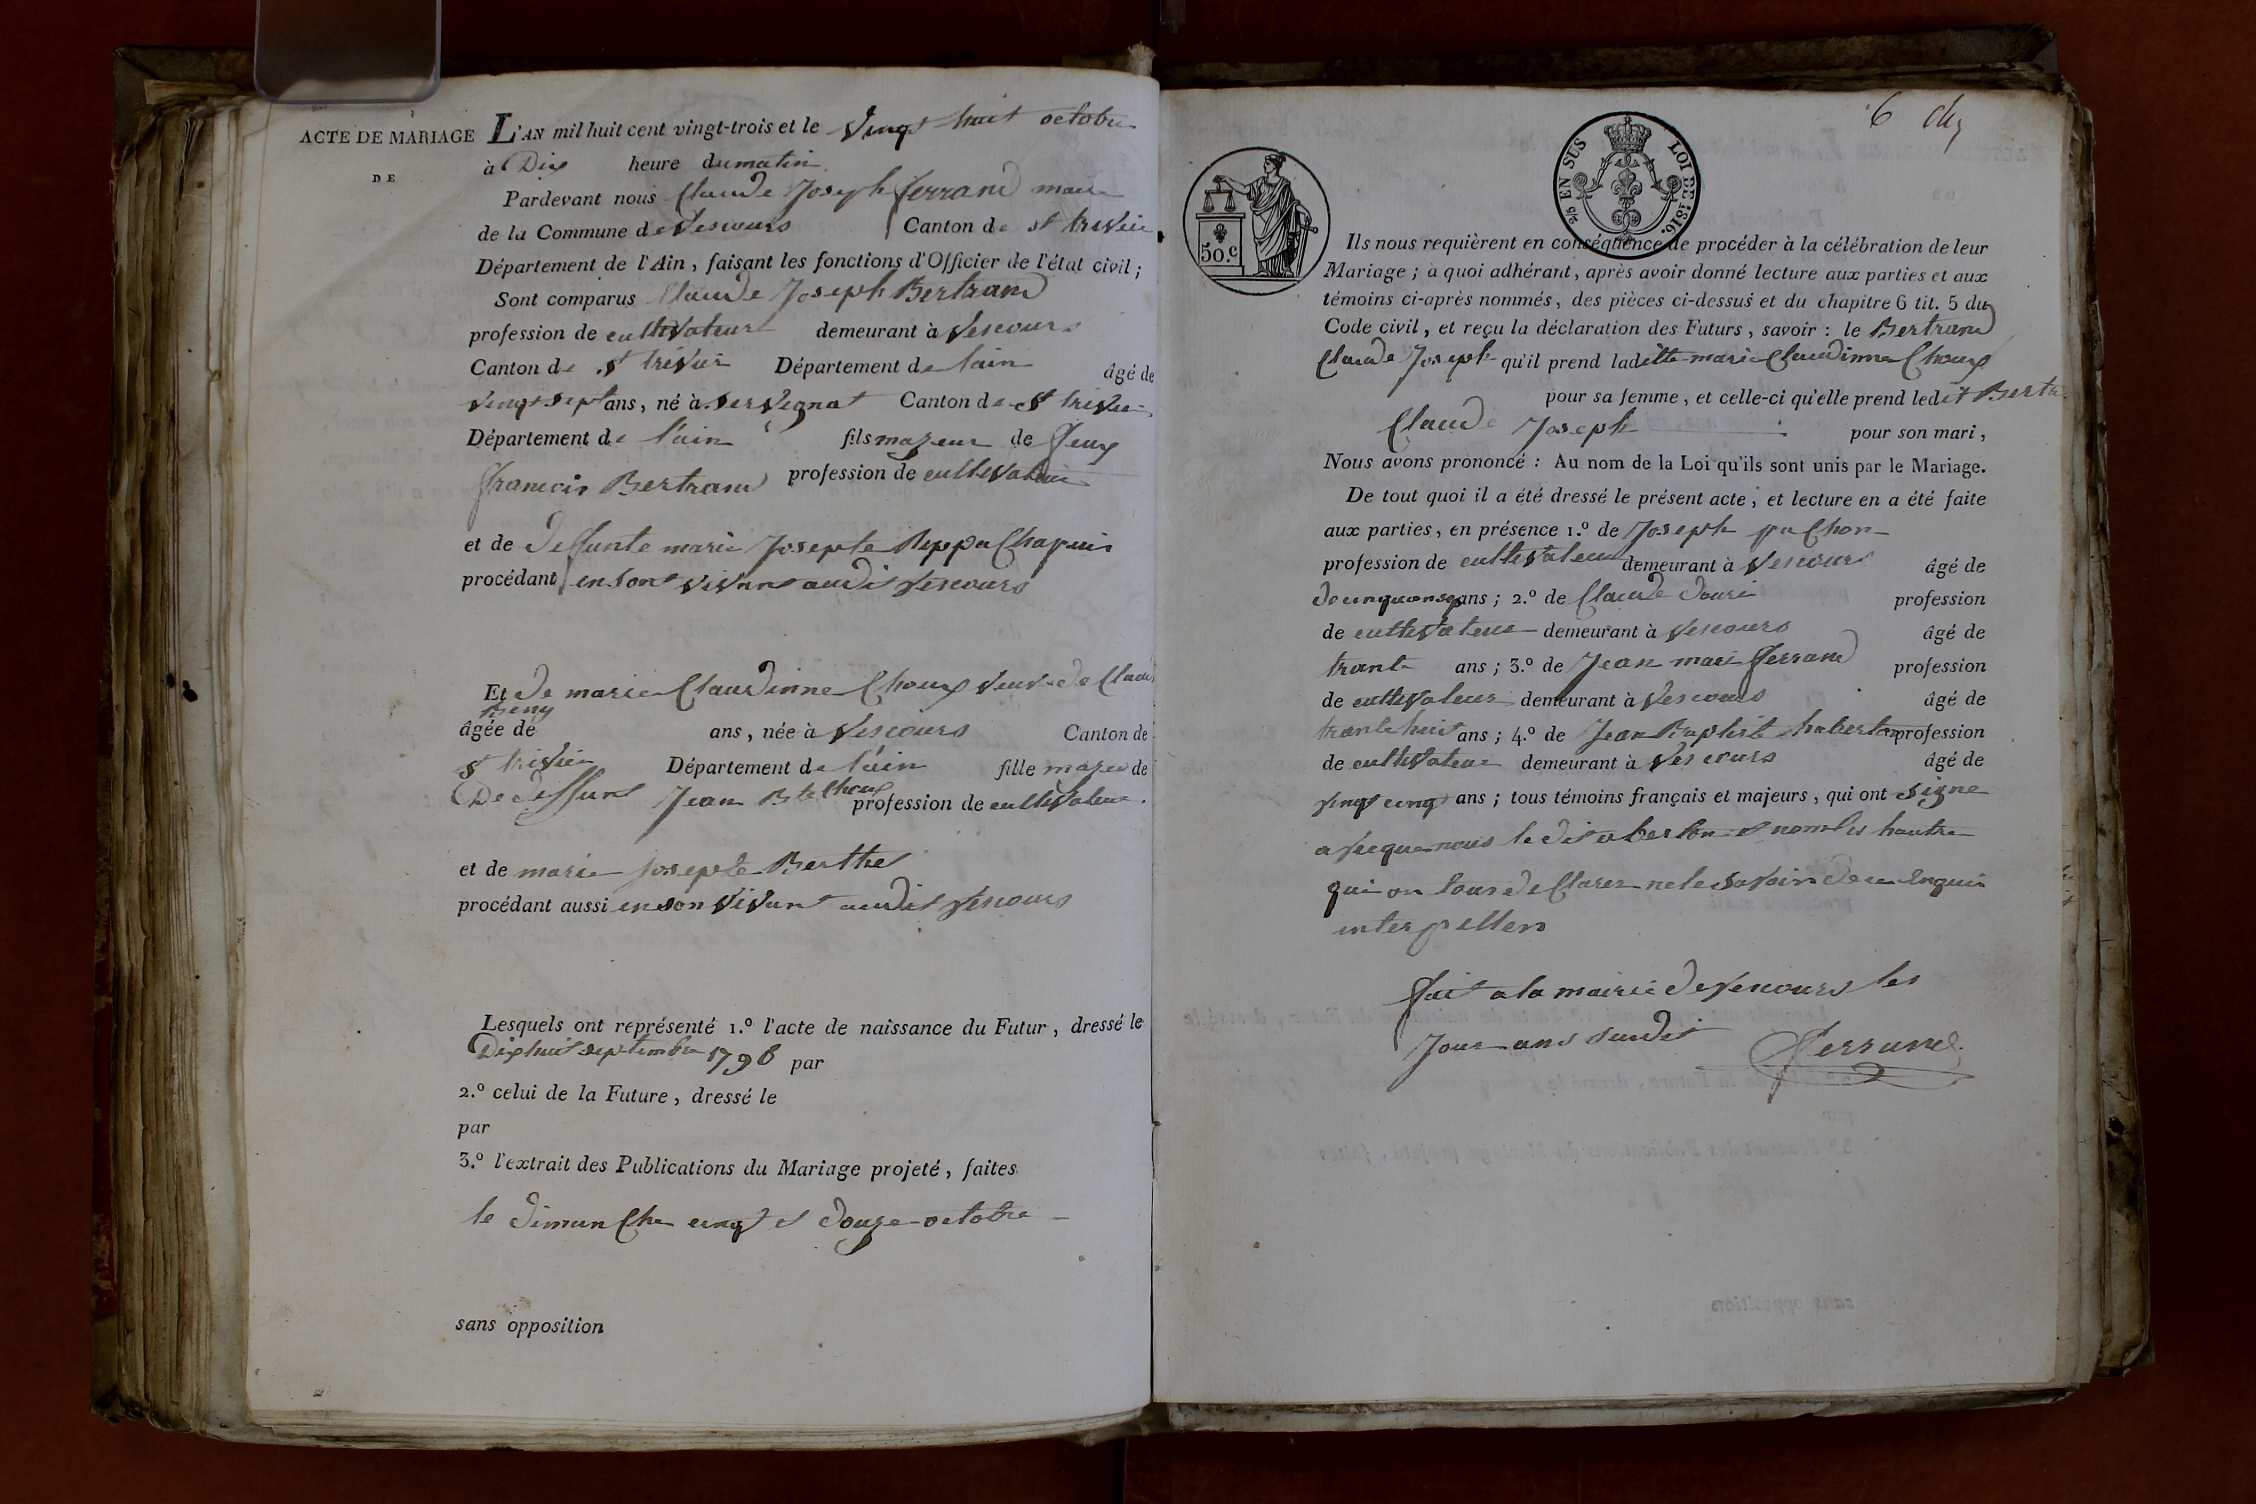 ACTE DE MARIAGE
DE
L'AN mil huit cent vingt-trois et le vingt huit octobre
à Dix heure du matin
Pardevant nous Claude Joseph ferrand maire
de la Commune de Vescours Canton de st trivier
Département de l'Ain, faisant les fonctions d'Officier de l'état civil;
Sont comparus Claude Joseph Bertrand
profession de cultivateur demeurant à Vescours
Canton de st trivier Département de lain âgé de
vingt sept ans, né à servignat Canton de st trivier
Département de l'ain fils majeur de feux
francois Bertrand profession de cultivateur
et de deffunte marie Josepte Chapuis
procédant en son vivant audit vescours
Et de marie Claudinne Choux veuve de Claude
âgée de ans, née à Vescours Canton de
st trivier Département de l'ain fille majeu de
De deffunt Jean Bte Choux profession de cultivateur.
et de marie josepte Berthet
procédant aussi en son vivant audit vescours
Lesquels ont représenté 1.º l'acte de naissance du Futur, dressé le
Dix huit septembre 1796 par
2.º celui de la Future, dressé le
par
3.º l'extrait des Publications du Mariage projeté, faites
le dimanche cinq et douze octobre
sans opposition
6
2/5 EN SUS LOI DE 1816.
50.c
Ils nous requièrent en conséquence de procéder à la célébration de leur
Mariage; à quoi adhérant, après avoir donné lecture aux parties et aux
témoins ci-après nommés, des pièces ci-dessus et du chapitre 6 tit. 5 du
Code civil, et reçu la déclaration des Futurs, savoir: le Bertrand
Claude Joseph qu'il prend laditte marie Claudinne Choux
pour sa femme, et celle-ci qu'elle prend ledit Bertr
Claude Joseph pour son mari,
Nous avons prononcé: Au nom de la Loi qu'ils sont unis par le Mariage.
De tout quoi il a été dressé le présent acte, et lecture en a été faite
aux parties, en présence 1.º de Joseph pachon
profession de cultivateur demeurant à Vescours âgé de
ans; 2.º de Claude profession
de cultivateur demeurant à Vescours âgé de
trante ans; 3.º de Jean marie ferrand profession
de cultivateur demeurant à Vescours âgé de
trante huit ans; 4.º de Jean Baptist profession
de cultivateur demeurant à Vescours âgé de
vingt cinq ans; tous témoins français et majeurs, qui ont signe
avecque nous le dit et nomles hautre
qui on tous de Clarer ne le savoir de ce enquis
interpellers
fait a la mairie de vescours les
Jour ans sudit ferrand